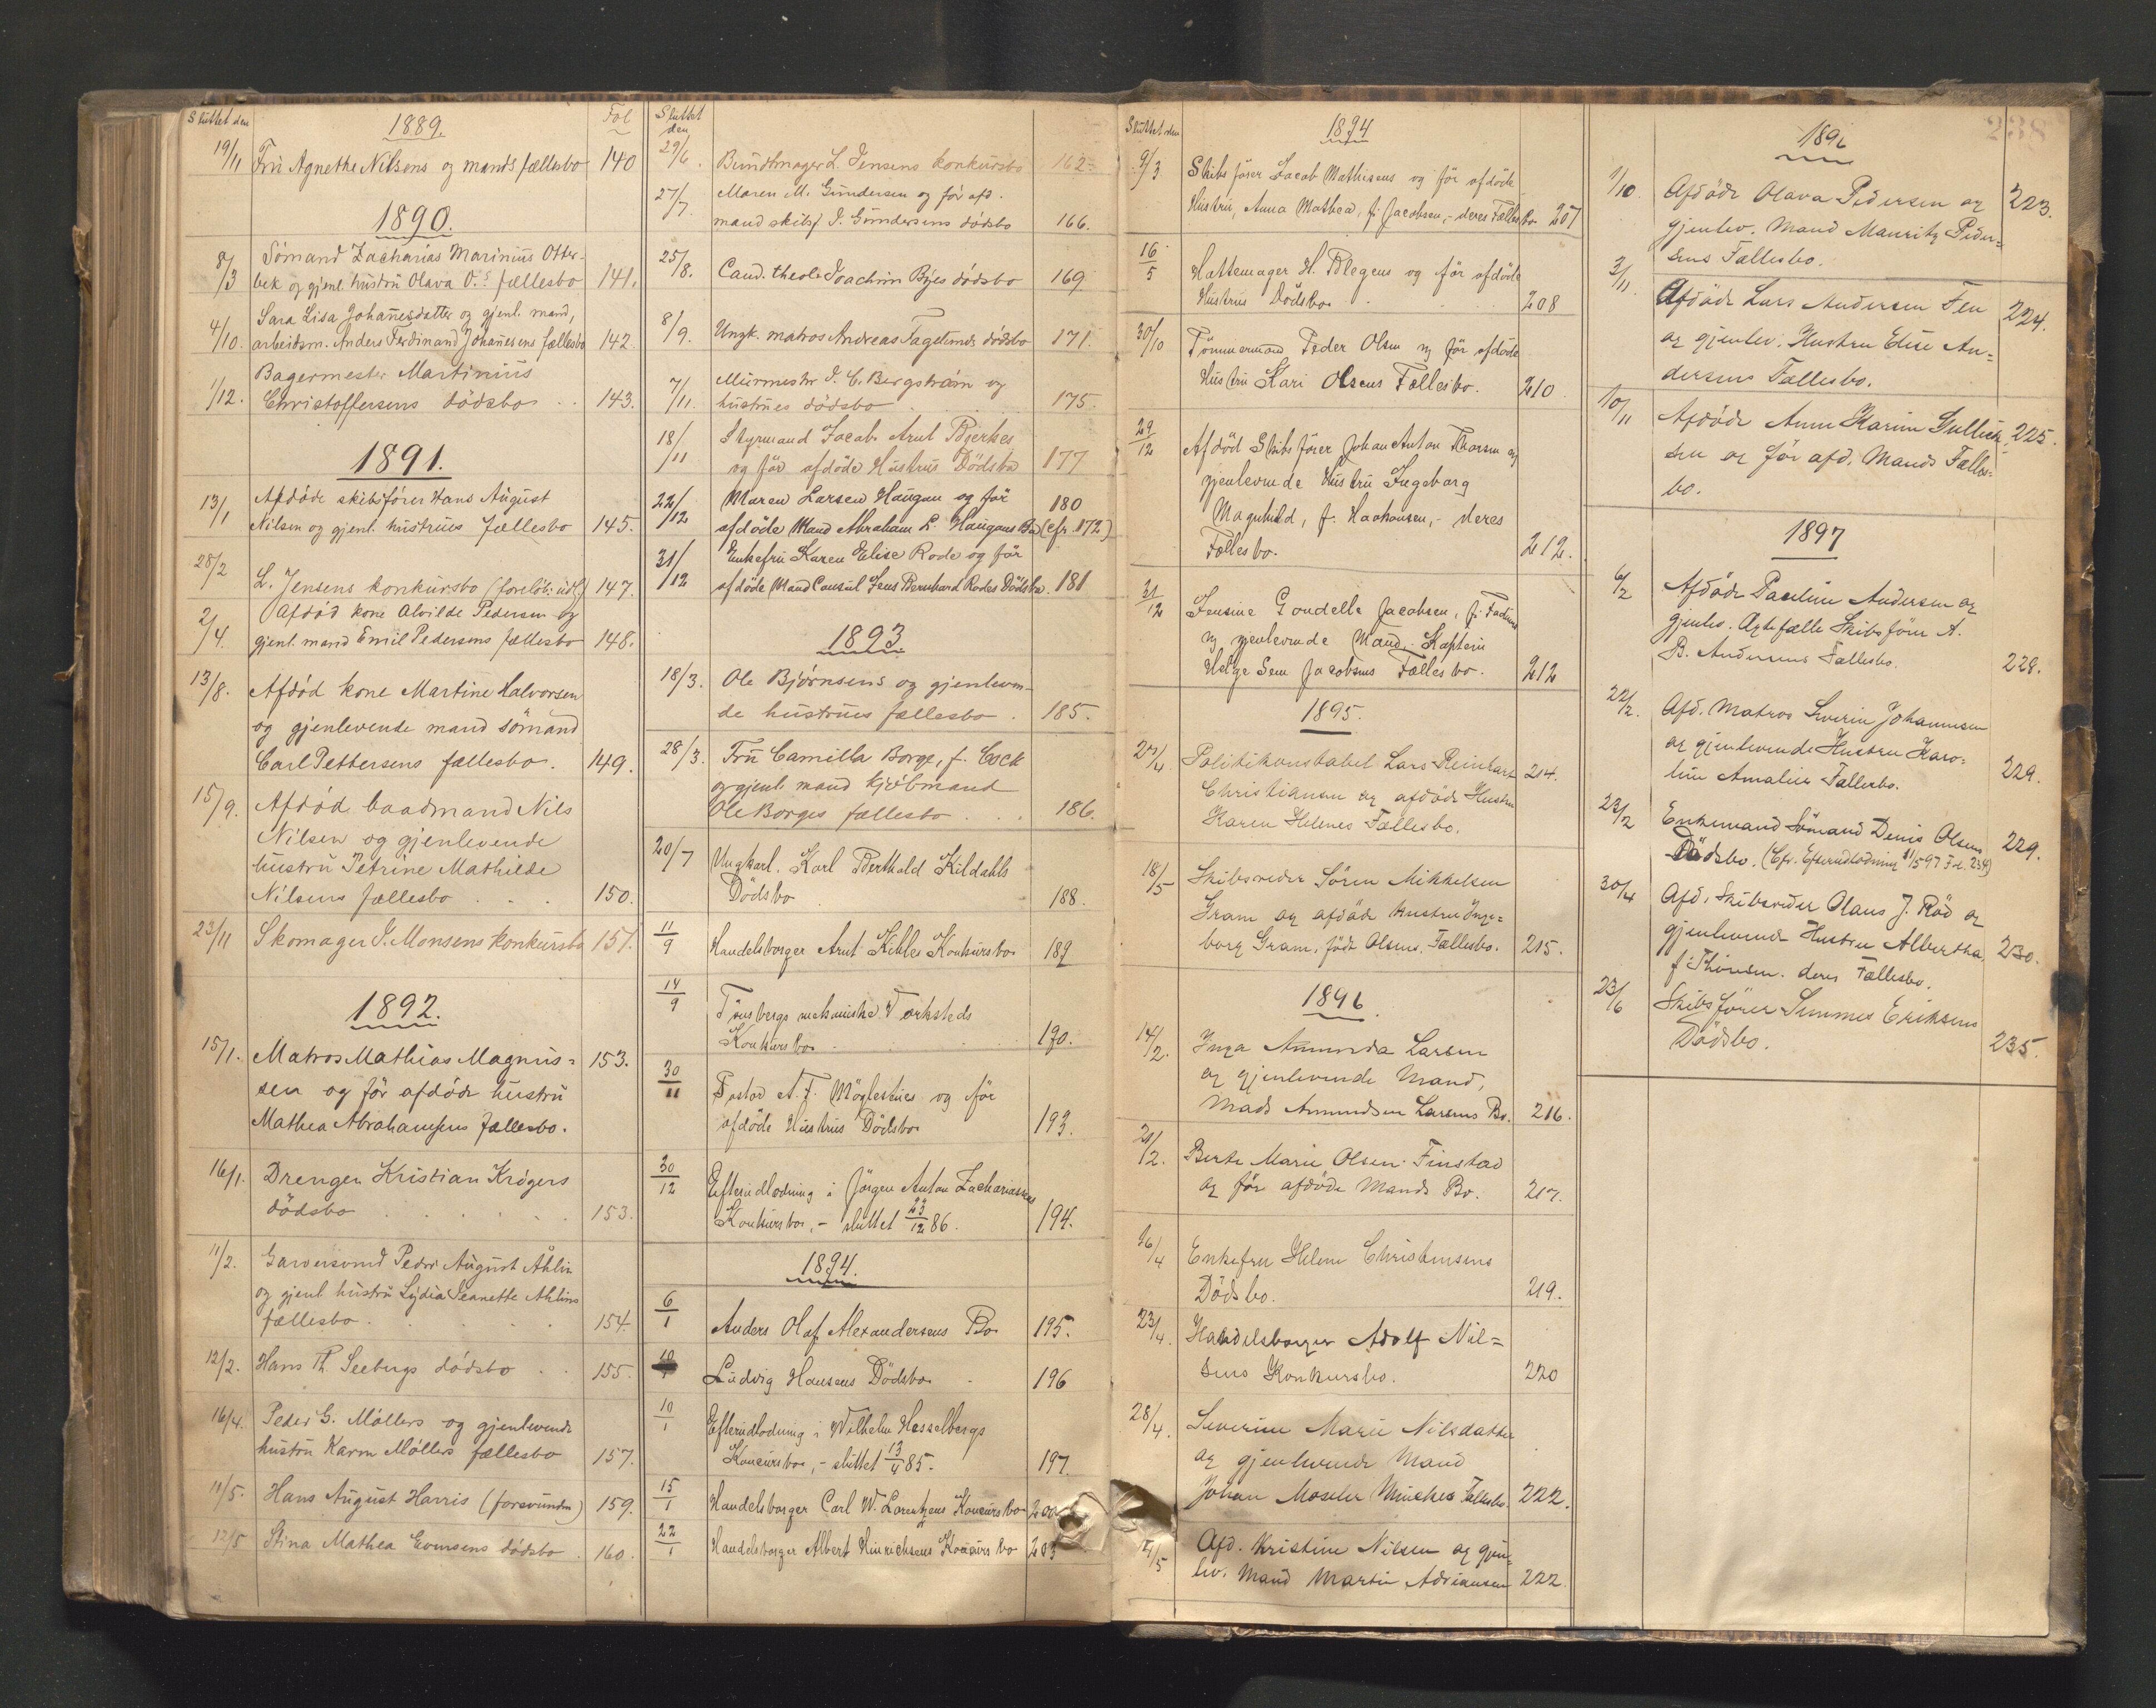 Sluttet den
1889.
Fol
19/11 Fru Agnethe Nilsens og mands fællesbo 140
1890.
8/3 Sömand Zacharias Marinius Otter-
bek og gjenl. hustru Olava O.s fællesbo 141.
4/10. Sara Lisa Johannesdatter og gjenl. mand,
arbeidsm. Anders Ferdinand Johannesens fællesbo 142.
1/12. Bagermester Martinius
Christoffersens dödsbo . . 143.
1891.
13/1 Afdöde skibsförer Hans August
Nilsen og gjenl. hustrues fællesbo 145.
28/2 L. Jensens konkursbo (foreløb: udl) 147.
2/4. Afdöd kone Alvilde Pedersen og
gjenl. mand Emil Pedersens fællesbo 148.
13/8. Afdöd kone Martine Halvorsen
og gjenlevende mand sömand
Carl Pettersens fællesbo. 149.
15/9. Afdöd baadmand Nils
Nilsen og gjenlevende
hustru Petrine Mathilde
Nilsens fællesbo . . . 150.
23/11 Skomager I. Monsens konkursbo 151.
1892.
15/1. Matros Mathias Magnus= 153.
sen og för afdöde hustru
Mathea Abrahamsens fællesbo.
16/1. Drengen Kristian Krögers
dödsbo . . . . . . 153.
11/2. Garversvend Peder August Åhlin
og gjenl. hustru Lydia Jeanette Åhlins
fællesbo . . . . . 154.
12/2. Hans Th. Seebergs dödsbo . . 155.
16/4. Peder G. Möllers og gjenlevende
hustru Karen Möllers fællesbo 157.
11/5. Hans August Harris (forsvunden) 159.
12/5 Stina Mathea Evensens dödsbo . 160.
Sluttet
den
29/6. Bundtmager L. Jensens konkursbo 162
27/7. Maren M. Gundersen og för afd.
mand skibsf. I. Gundersens dödsbo 166.
25/8. Cand. theol. Joachim Byes dödsbo 169
8/9. Ungk. matros Andreas Fagelunds dödsbo 171.
7/11. Murmester I. C. Bergström og
hustrues dödsbo . . . 175.
18/11 Styrmand Jacob Arnt Bjerkes
og för afdöde Hustrus Dödsbo 177
22/12 Maren Larsen Haugan og för 180
afdöde Mand Abraham L. Haugans Bo (cfr. 172)
31/12 Enkefru Karen Elise Rode og för
afdöde Mand Consul Jens Bernhard Rodes Dödsbo. 181
1893.
18/3. Ole Björnsens og gjenleven-
de hustrues fællesbo . 185.
28/3. Fru Camilla Borge, f. Cock
og gjenl. mand kjöbmand
Ole Borges fællesbo . . . 186.
20/7 Ungkarl. Karl Berthold Kildahls
Dödsbo . 188.
11/9 Handelsborger Arnt Kihles Konkursbo 189
14/9 Tönsbergs mekaniske Værksteds
Konkursbo . . . . . 190.
30/11 Pastor A. F. Möglestues og för
afdöde Hustrus Dödsbo 193.
30/12 Efterudlodning i Jörgen Anton Zachariasens
Konkursbo, - sluttet 23/12 86. 194.
1894.
6/1 Anders Olaf Alexandersens Bo 195.
10/1 Ludvig Hansens Dödsbo . 196
10/1 Efterudlodning i Wilhelm Hesselbergs
Koncursbo, - sluttet 13/4 85. 197.
15/1 Handelsborger Carl W. Lorentzens Koncursbo 200
22/1 Handelsborger Albert Hinrichsens Koncursbo 203
Sluttet den
1894
9/3 Skibsförer Jacob Mathisens og för afdöde
Hustru, Anna Mathea, f. Jacobsen, - deres Fællesbo 207
16/5 Hattemager H. Blegens og för afdöde
Hustrus Dödsbo . . . 208
30/10 Tömmermand Peder Olsen og för afdöde
Hustru Kari Olsens Fællesbo. 210
29/12 Afdöd Skibsförer Johan Anton Thorsen og
gjenlevende Hustru Ingeborg
Magnhild, f. Haakonsen, - deres
Fællesbo. 212.
31/12 Jensine Gondelle Jacobsen, f.
og gjenlevende Mand, Kaptein
Helge Sem Jacobsens Fællesbo. 212
1895.
27/4 Politikonstabel Lars Reinhart 214.
Christiansen og afdöde Hustru
Karen Helenes Fællesbo.
18/5 Skibsreder Sören Mikkelsen
Gram og afdöde Hustru Inge=
borg Gram, född Olsens, Fællesbo. 215.
1896.
14/2. Inga Amunda Larsen
og gjenlevende Mand,
Mads Amundsen Larsens Bo. 216.
21/2. Berte Marie Olsen Finstad
og för afdöde Mands Bo. 217.
16/4 Enkefru Helene Christensens
Dödsbo. 219.
23/4. Handelsborger Adolf Nil=
sens Konkursbo. 220
28/4. Severine Marie Nilsdatter
og gjenlevende Mand
Johan Moseler Münches Fællesbo. 222.
4/5 Afd. Kristine Nilsen og gjen=
lev. Mand Martin Adriansen 222
238
1896
1/10. Afdöde Olava Pedersen og 223.
gjenlev. Mand Mauritz Peder=
sens Fællesbo.
3/11. Afdöde Lars Andersen Fen 224.
og gjenlev. Hustru Elise An=
dersens Fællesbo.
10/11 Afdöde Anne Karine Gullick 225.
sen og för afd. Mands Fælles=
bo.
1897
6/2 Afdöde Pauline Andersen og
gjenlev. Ægtefælle Skibsförer A.
B. Andersens Fællesbo. 228.
22/2. Afd. Matros Severin Johannesen
og gjenlevende Hustru Karo=
line Amalies Fællesbo. 229.
23/2 Enkemand Sömand Denis Olsens 229.
Dödsbo. (Cfr. Efterudlodning 11/5 97 Fol. 234)
30/4 Afd. Skibsreder Olaus J. Röd og
gjenlevende Hustru Albertha 230.
f. Thorsen. deres Fællesbo.
23/6 Skibsförer Simmes Eriksens
Dödsbo. 235.